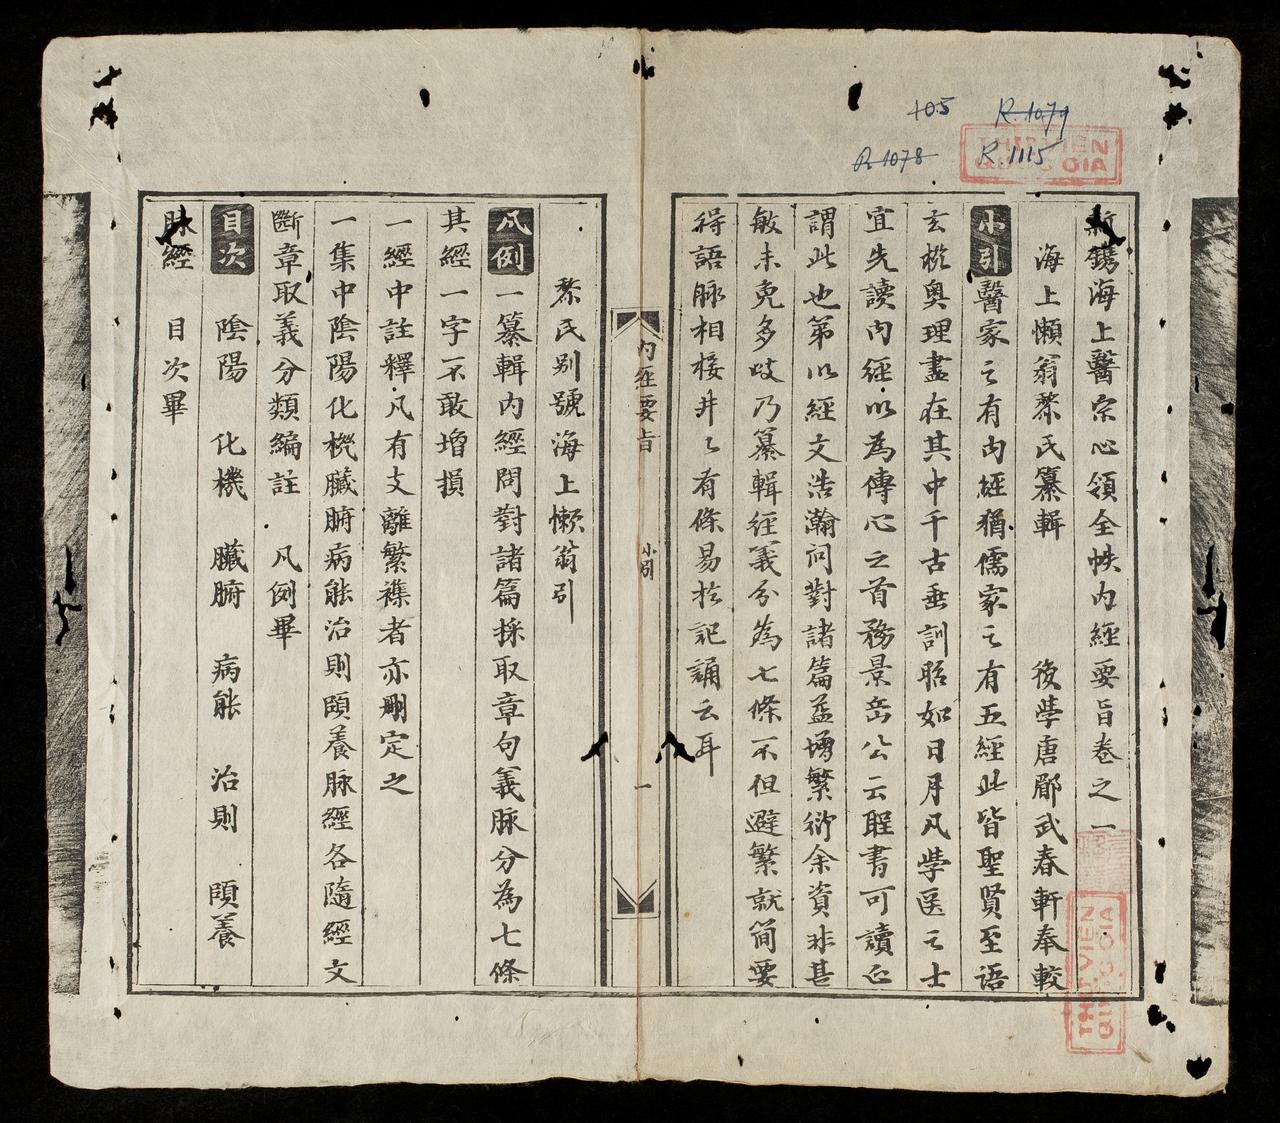 105
R.1079
R.1078
R.1115
THƯ VIỆN
QUỐC GIA
新鐫海上醫宗心領全帙内經要旨卷之一
海上懶翁黎氏纂輯 後學唐郿武春軒奉較
小引 醫家之有内經猶儒家之有五經此皆聖賢至语
玄樞奥理盡在其中千古垂訓昭如日月凡學医之士
宜先讀内經以為傳心之首務景岳公云聖書可讀正
謂此也第以經文浩瀚问對諸篇益增繁衍余資非甚
敏未免多歧乃纂輯經義分為七條不但避繁就简要
得語脉相接井々有條易於記誦云耳
内經要旨 小引 一
黎氏别號海上懒翁引
凡例 一纂輯内經問對諸篇採取章句義脉分為七條
其經一字不敢增損
一經中註釋凡有支離繁襍者亦刪定之
一集中陰陽化機臟腑病能治則頤養脉經各隨經文
斷章取義分類編註 凡例畢
目次 陰陽 化機 臟腑 病能 治則 頤養
脉經 目次畢
THƯ VIỆN
QUỐC GIA